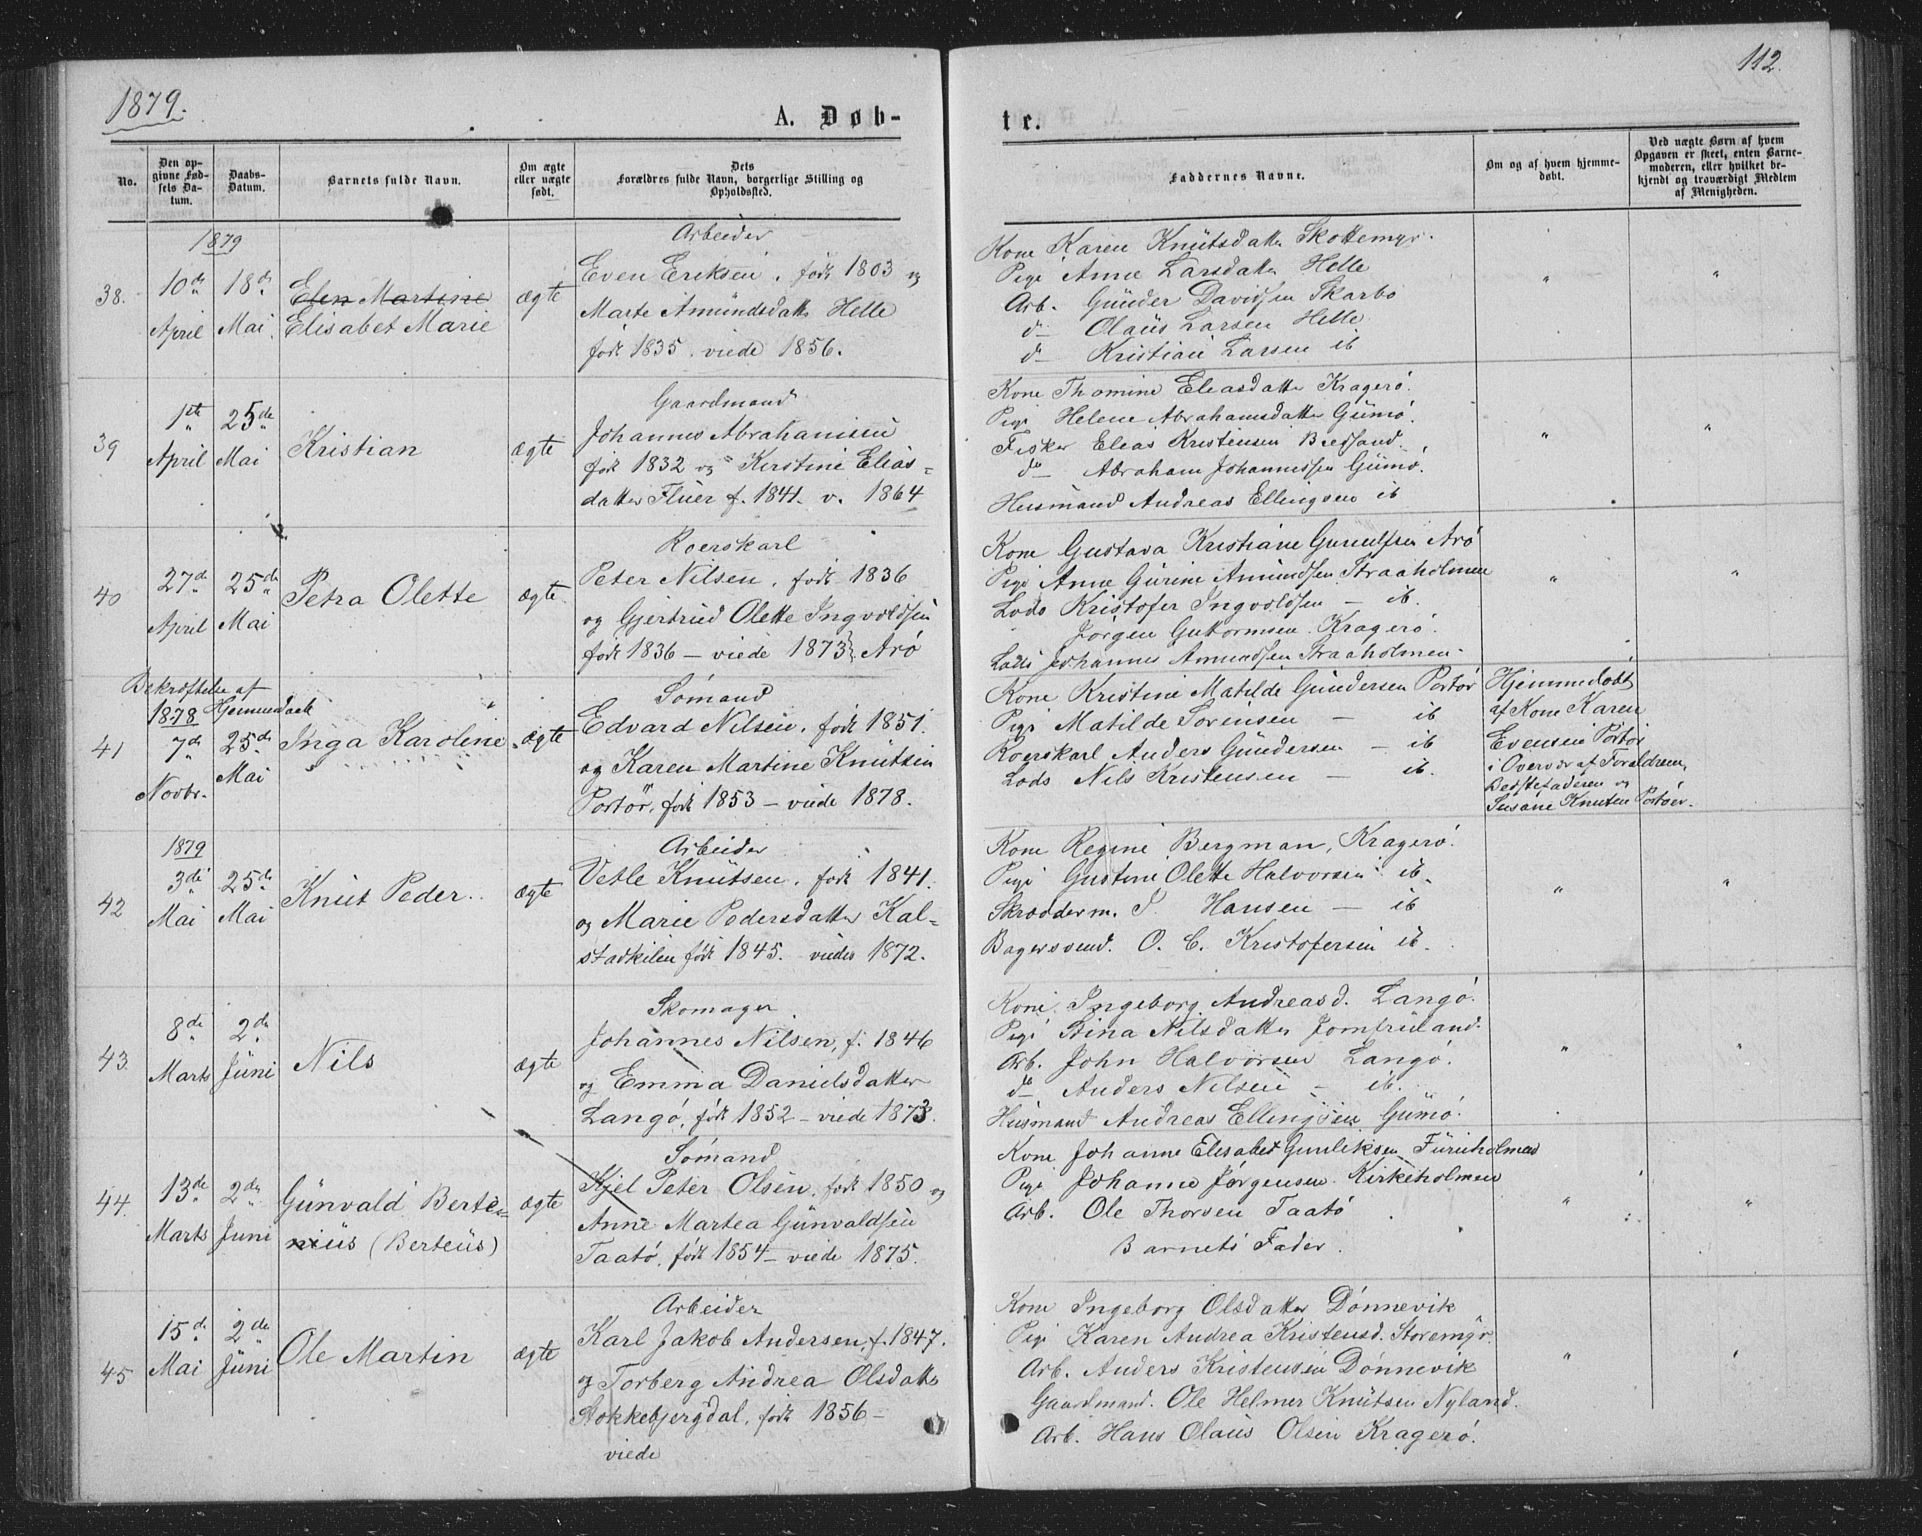 1879.
112.
A. Døb-
te.
No.
Den op-
givne Fød-
sels Da-
tum.
Daabs-
Datum.
Barnets fulde Navn.
Om ægte
eller uægte
født.
Dets
Forældres fulde Navn, borgerlige Stilling og
Opholdssted.
Faddernes Navne.
Om og af hvem hjemme-
døbt.
Ved uægte Børn af hvem
Opgaven er skeet, enten Barne-
moderen, eller hvilket be-
kjendt og troværdigt Medlem
af Menigheden.
1879
38.
10de
April
18de
Mai
Elen Martine
Elisabet Marie
ægte
Arbeider
Even Eriksen, født 1803 og
Marte Amundsdatt Helle
født 1835. viede 1856.
Kone Karen Knutsdatte Skottemyr.
Pige Anne Larsdatte Helle
Arb. Günder Davidsen Skarbo
d— Olaus Larsen Helle.
d— Kristian Larsen ib
39
1ste
April
25de
Mai
Kristian
ægte
Gaardmand
Johannes Abrahamsen
født 1832 og Kirstine Elias-
datter Fluer f. 1841. v. 1864
Kone Thomine Eleasdatte Kragerö.
Pige Helene Abrahamsdatte Gumö.
Fisker Eleas Kristensen
do— Abraham Johannesen Gumö.
Husmand Andreas Ellingsen ib
40
27de
April
25de
Mai
Petra Olette
ægte
Roerskarl
Peter Nilsen, født 1836
og Gjertrud Olette Ingvoldsen
født 1836 — viede 1873 } Arö
Kone Gustava Kristiane Gunulfsen Arö
Pige Anne Gurine Amundsen Straaholmen
Lods Kristofer Ingvoldsen — ib.
Jørgen Guttormsen Kragerö.
Lods Johannes Amundsen Straaholmen.
Bekræftelse af
1878 Hjemmedaab
41
7de
Novbr.
25de
Mai
Inga Karoline
ægte
Sømand
Edvard Nilsen, født 1851.
og Karen Martine Knutsen
Portör, født 1853 — viede 1878.
Kone Kristine Matilde Gundersen Portör
Pige Matilde Sørensen — ib
Roerskarl Anders Gundersen — ib
Lods Nils Kristensen — ib.
Hjemmedøbt
af Kone Karen
Evensen Portör
i Overvær af Forældrene,
Bedstefaderen og
Susane Knutsen Portöer.
1879
42
3die
Mai
25de
Mai
Knut Peder.
ægte
Arbeider
Vetle Knutsen, født 1841.
og Marie Pedersdatter Kal-
stadkilen født 1845. viedes 1872.
Kone Regine Bergman, Kragerö.
Pige Gustine Olette Halvorsen ib.
Skrædderm. P. Hansen — ib
Bagersvend. O. C. Kristofersen ib.
43.
8de
Marts
2den
Juni
Nils
ægte
Skomager
Johannes Nilsen, f. 1846
og Emma Danielsdatter
Langö, født 1852 — viede 1873.
Kone Ingeborg Andreasd. Langö.
Pige Stina Nilsdatter Jomfruland.
Arb. John Halvorsen Langö.
do— Anders Nilsen — ib.
Husmand Andreas Ellingsen Gumö.
44.
13de
Marts
2den
Juni
Gunvald Berti-
nius (Berteus)
ægte
Sømand
Kjel Peter Olsen, født 1850 og
Anne Martea Gunvaldsen
Taatö, født 1854 — viede 1875.
Kone Johanne Elisabet Gunliksen Furuholmen
Pige Johanne Jørgensen Kirkeholmen
Arb. Ole Thorsen Taatö
Barnets Fader.
45
15de
Mai
2den
Juni
Ole Martin
ægte
Arbeider
Karl Jakob Andersen, f. 1847.
og Torberg Andrea Olsdatte
Stokkebjergdal, født 1856 —
viede
Kone Ingeborg Olsdatter Dønnevik
Pige Karen Andrea Kristensd. Storemyr
Arb. Anders Kristensen Dønnevik
Gaardmand. Ole Helmer Knutsen Nyland.
Arb. Hans Olaus Olsen Kragerö.